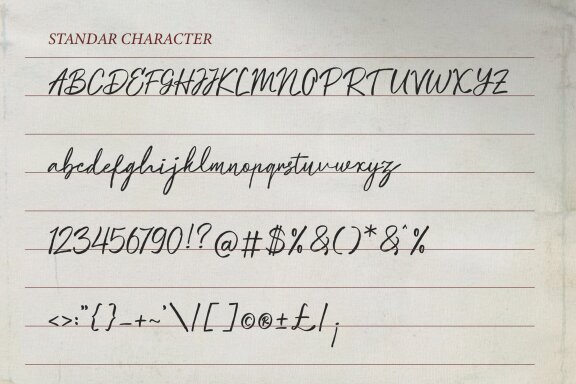 STANDAR CHARACTER
ABCDEFGHIJKLMNOPRTUVWXYZ
abcdefghijklmnopqrstuvwxyz
123456790!?@#$%&()*&^%
<>:"{}_+~'\/[]©®±£/¡